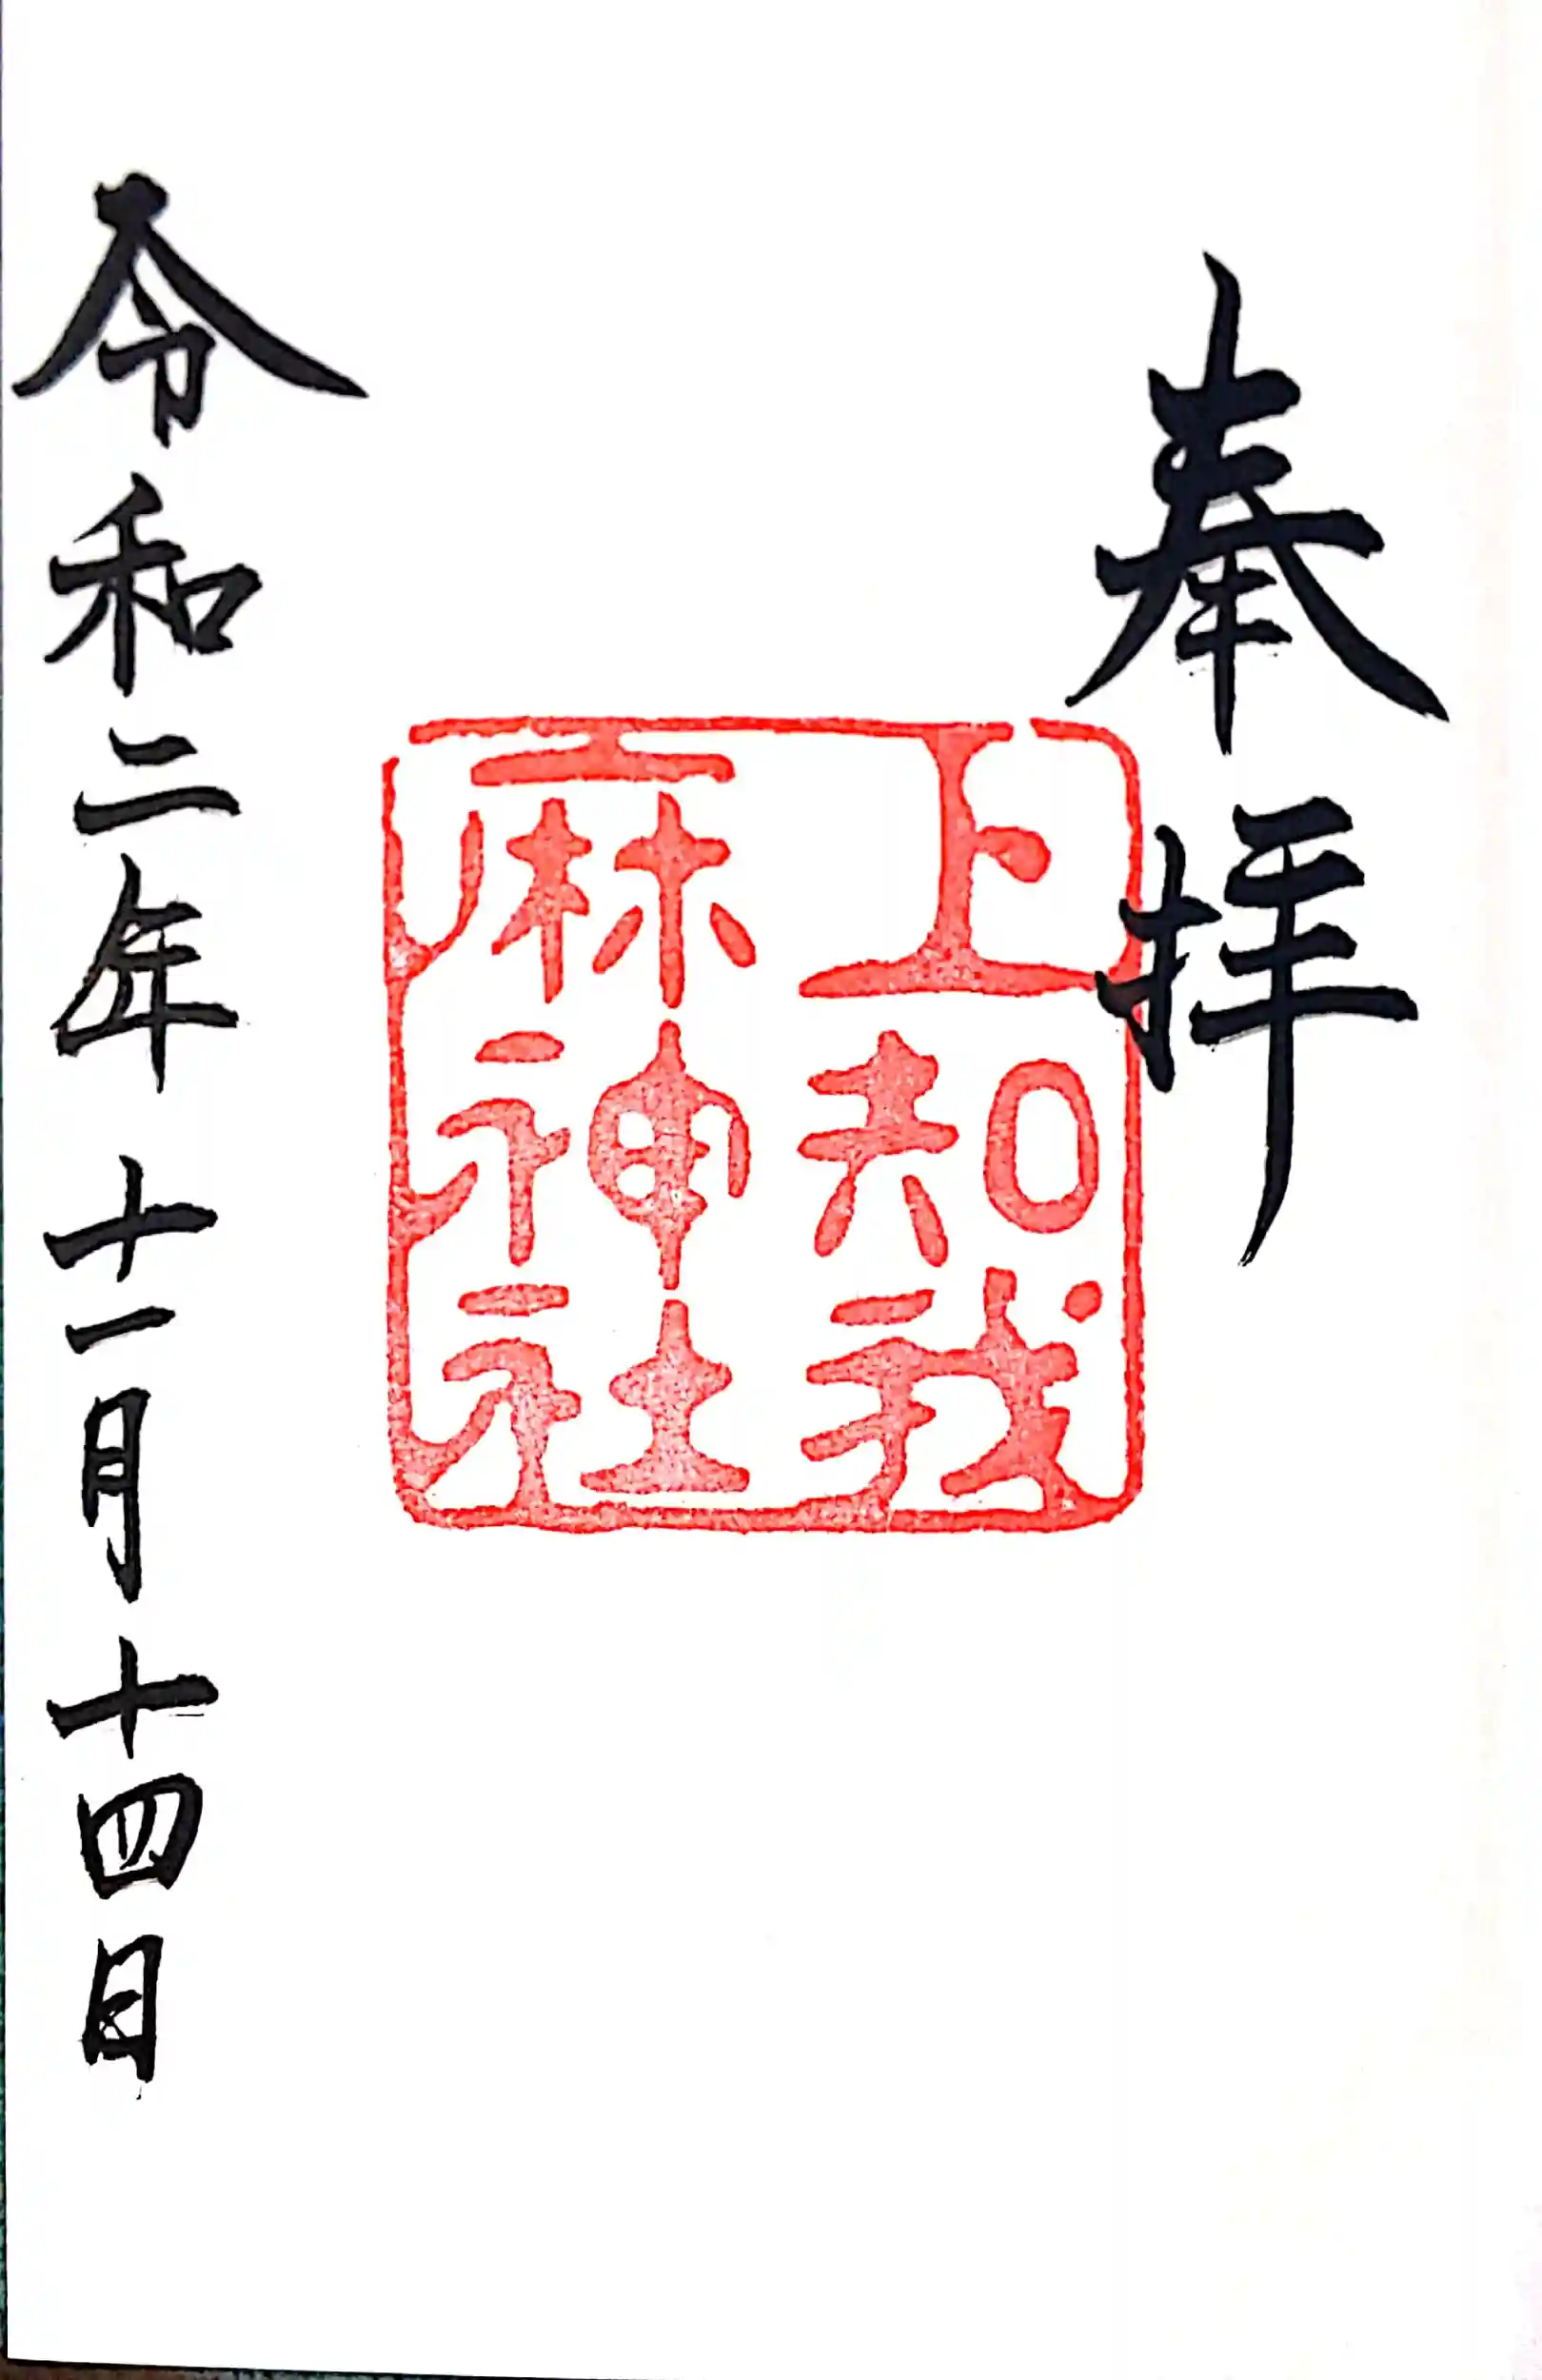 奉拝
上知我
麻神社
令和二年十一月十四日